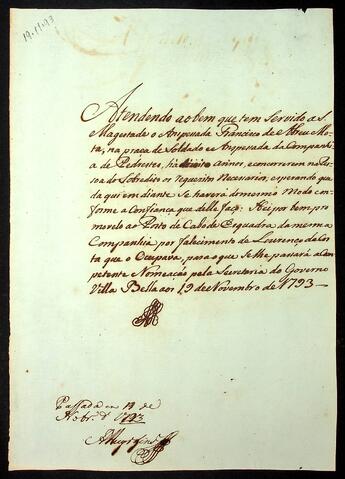 19.11.93
Atendendo ao bem que tem Servido a S.
Magestade o Anspeçada Francisco de Abreu Mo-
ta, na praça de Soldado e Anspeçada da Companhi-
a de Pedrestes, ha annos, e concorrerem na Pes-
soa do Sobredito os requezitos Necessarios, esperando que
da qui em diante se haverá do mesmo modo con-
forme a Confiança que delle faço: Hei por bem pro-
movelo ao Posto de Cabo de Esquadra da mesma
Companhia por falecimento de Lourenço da Cos-
ta que o Ocupava, para o que se lhe passará a Com-
petente Nomeação pela Secretaria do Governo
Villa Bella aos 19 de Novembro de 1793
Passada em 19 de
Nobr.º d 1793